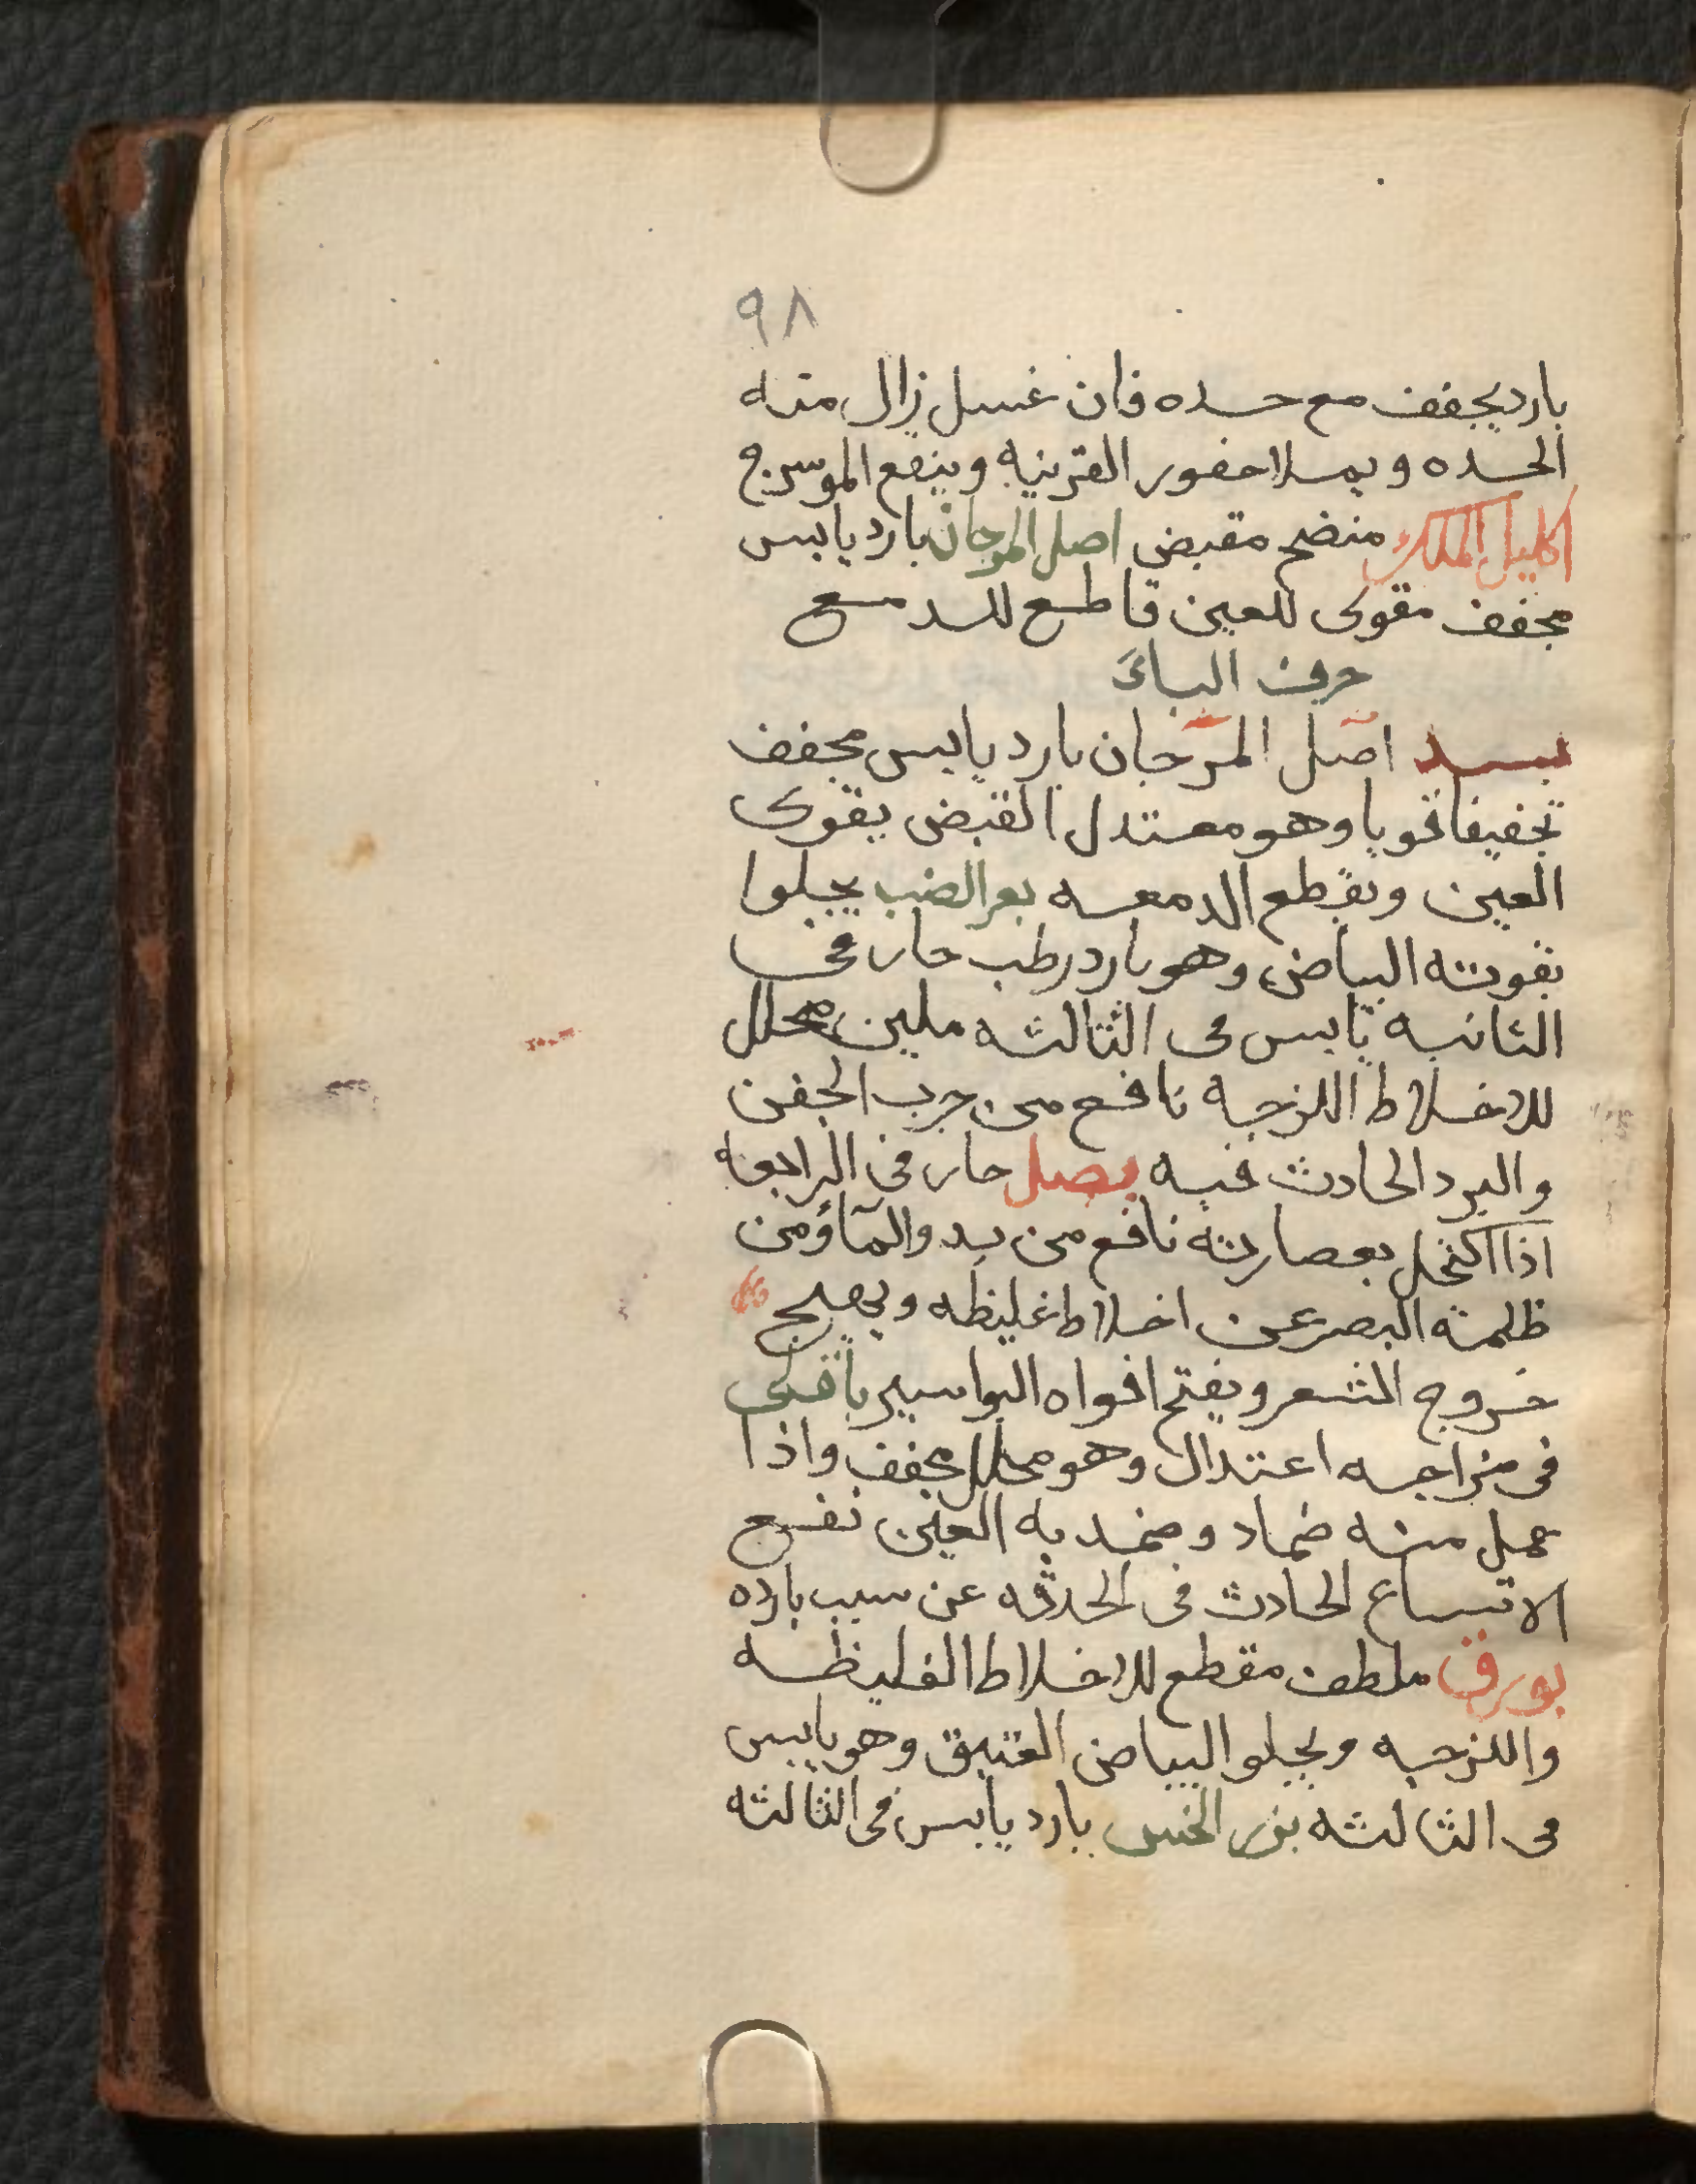 ٩٨
بارد يجفف مع حده فان غسل زال منه
الحده ويملا حفور القرنيه وينفع الموسرج
اكليل الملك منضج مقبض اصل المرجان بارد يابس
مجفف مقوى للعين قاطع للدمع
حرف الباء
بسد اصل المرجان بارد يابس مجفف
تجفيفا قويا وهو معتدل القبض يقوى
العين ويقطع الدمعه بعر الضب يجلوا
بقوته البياض وهو بارد رطب حار فى
الثانيه يابس فى الثالثه ملين محلل
للاخلاط اللزجه نافع من جرب الجفن
والبرد الحادث فيه بصل حار فى الرابعه
اذا اكتحل بعصارته نافع من بدو الماؤمن
ظلمة البصر عن اخلاط غليظه ويصلح
خروج الشعر ويفتح افواه البواسير باقلى
فى مزاجه اعتدال وهو محلل مجفف واذا
عمل منه ضماد وضمد به العين نفع
الاتساع الحادث فى الحدقه عن سبب بارده
بورق ملطف مقطع للاخلاط الغليظه
واللزجه ويجلو البياض العتيق وهو يابس
فى الثالثه بزر الخس بارد يابس فى الثالثه